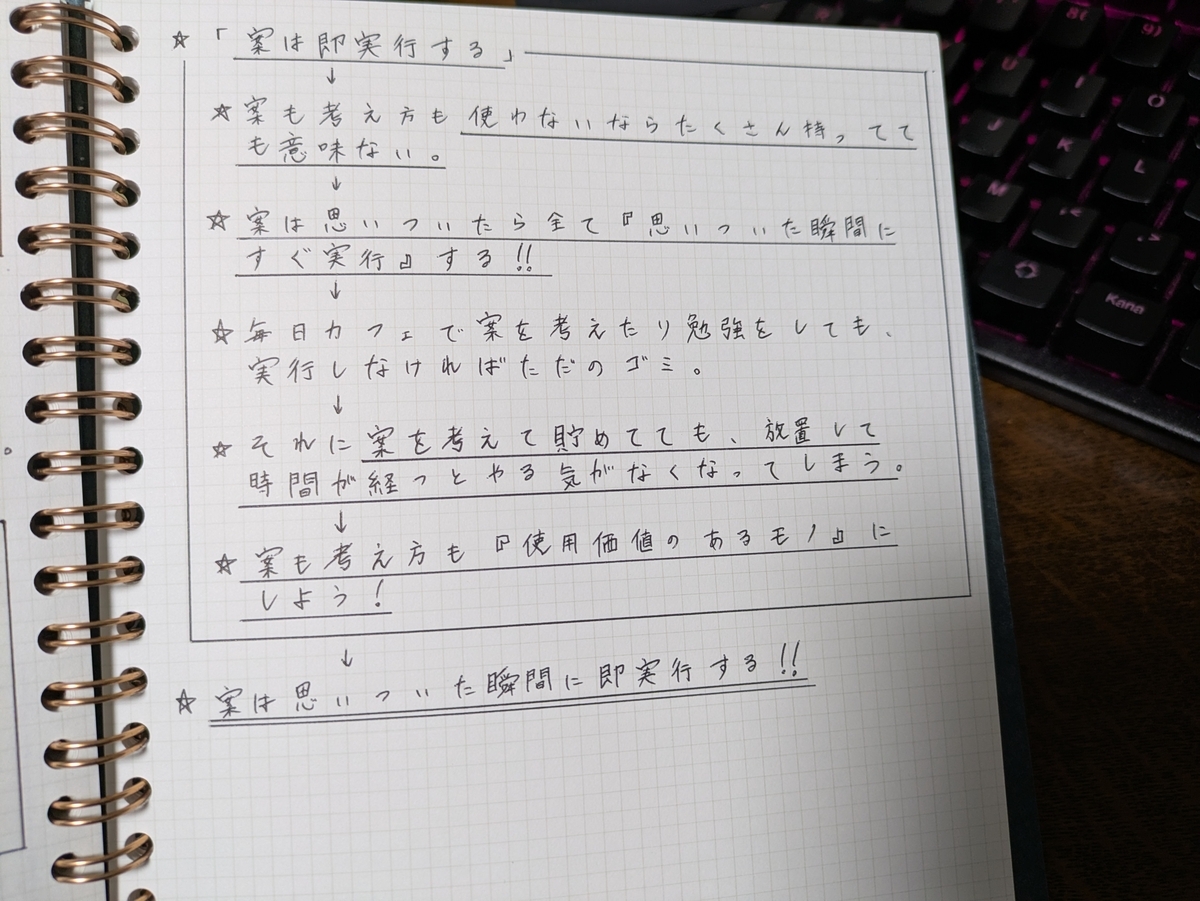 ☆「案は即実行する」
↓
☆案も考え方も使わないならたくさん持ってて
も意味ない。
↓
☆案は思いついたら全て『思いついた瞬間に
すぐ実行』する!!
↓
☆毎日カフェで案を考えたり勉強をしても、
実行しなければただのゴミ。
↓
☆それに案を考えて貯めてても、放置して
時間が経つとやる気がなくなってしまう。
↓
☆案も考え方も『使用価値のあるモノ』に
しよう!
↓
☆案は思いついた瞬間に即実行する!!
8(
9)
U
I
O
J
K
L
M
Kana